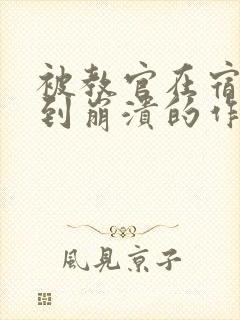 被教官在宿
到崩溃的作
風見京子